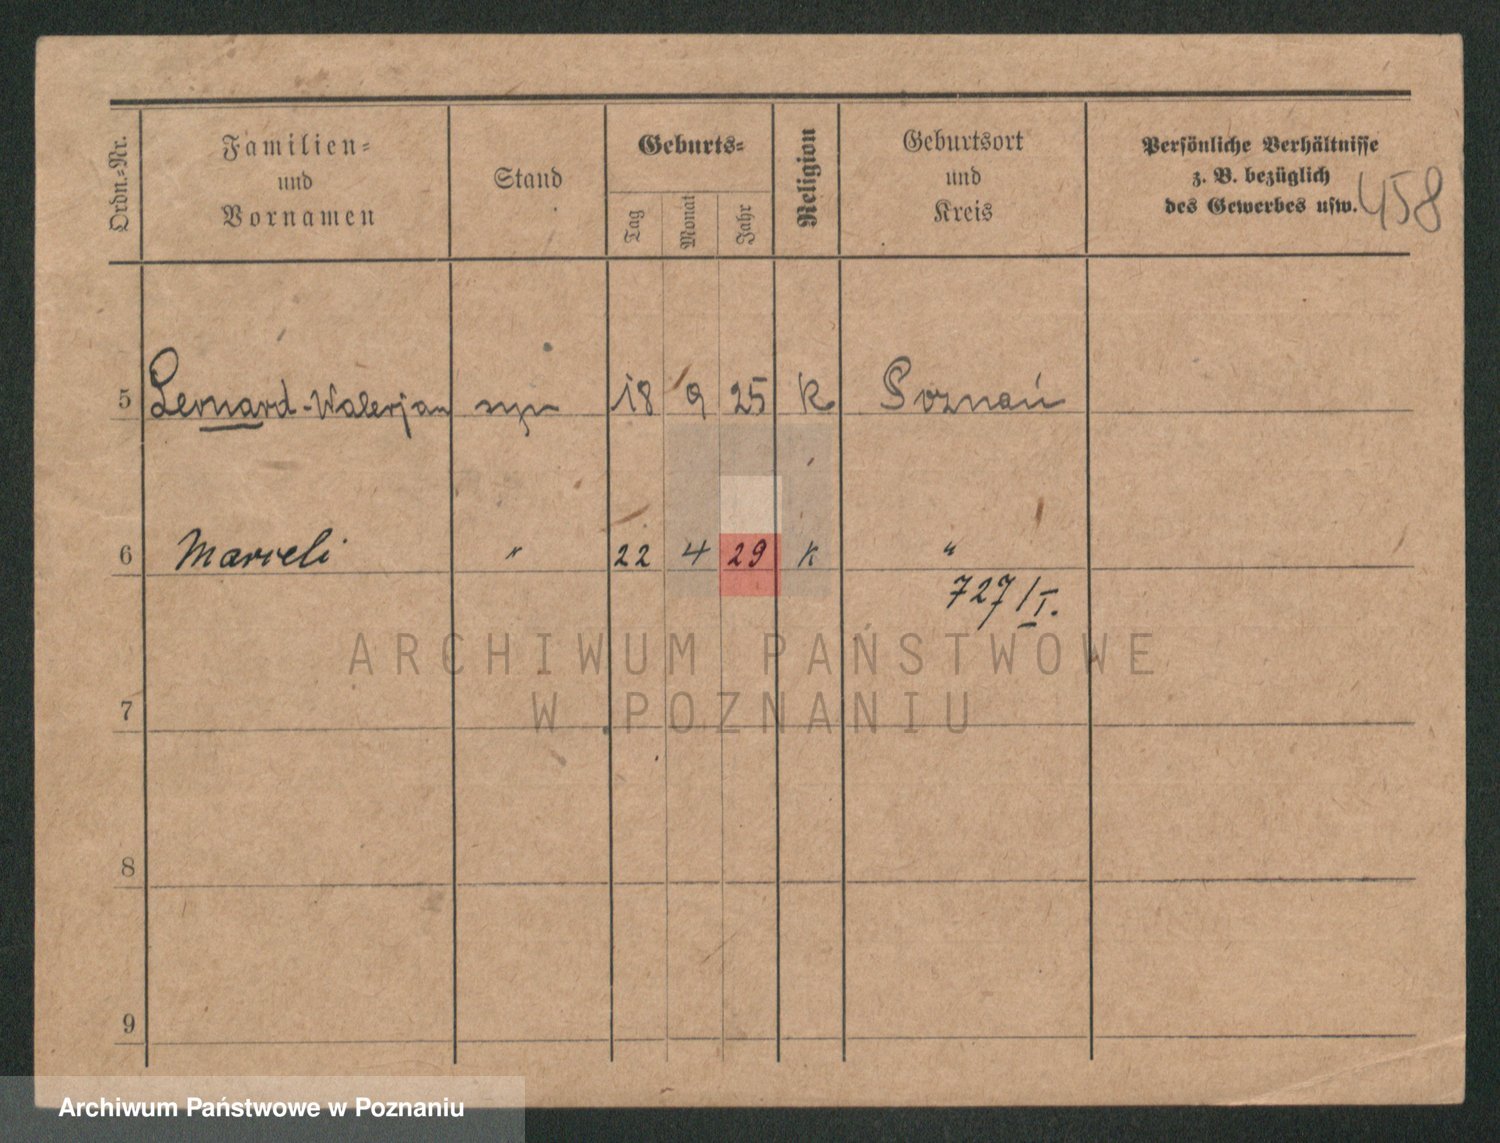 Ordn.-Nr.
Familien-
und
Vornamen
Stand
Geburts-
Tag
Monat
Jahr
Religion
Geburtsort
und
Kreis
Persönliche Verhältnisse
z. B. bezüglich
des Gewerbes usw.
458
5 Lernard-Walerjan syn 18 9 25 K Poznań
6 Marceli " 22 4 29 K "
727/I.
ARCHIWUM PAŃSTWOWE
W POZNANIU
7
8
9
Archiwum Państwowe w Poznaniu